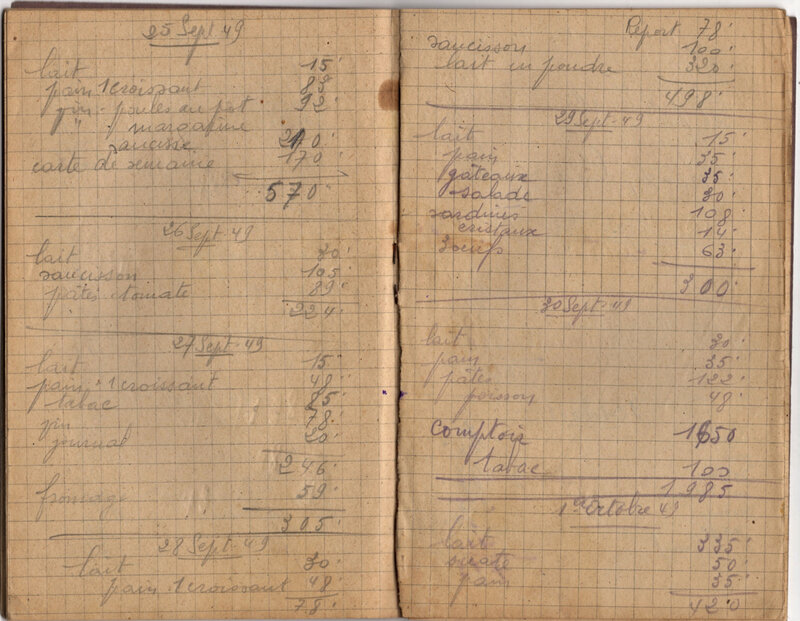 25 Sept 49
lait 15
pain 1 croissant 83
vin - poules au pot 92
" margarine
saucisse 210
carte de semaine 170
570
26 Sept 49
lait 30
saucisson 105
pâtes tomate 89
224
27 Sept 49
lait 15
pain + 1 croissant 48
tabac 85
vin 78
journal 20
246
fromage 59
305
28 Sept 49
lait 30
pain 1 croissant 48
78
Report 78
saucisson 100
lait en poudre 320
498
29 Sept 49
lait 15
pain 35
gâteaux 35
salade 30
sardines 108
cristaux 14
3 oeufs 63
300
30 Sept 49
lait 30
pain 35
pâtes 122
poisson 48
Comptoir 1650
tabac 100
1985
1er Octobre 49
lait 335
50
pain 35
420